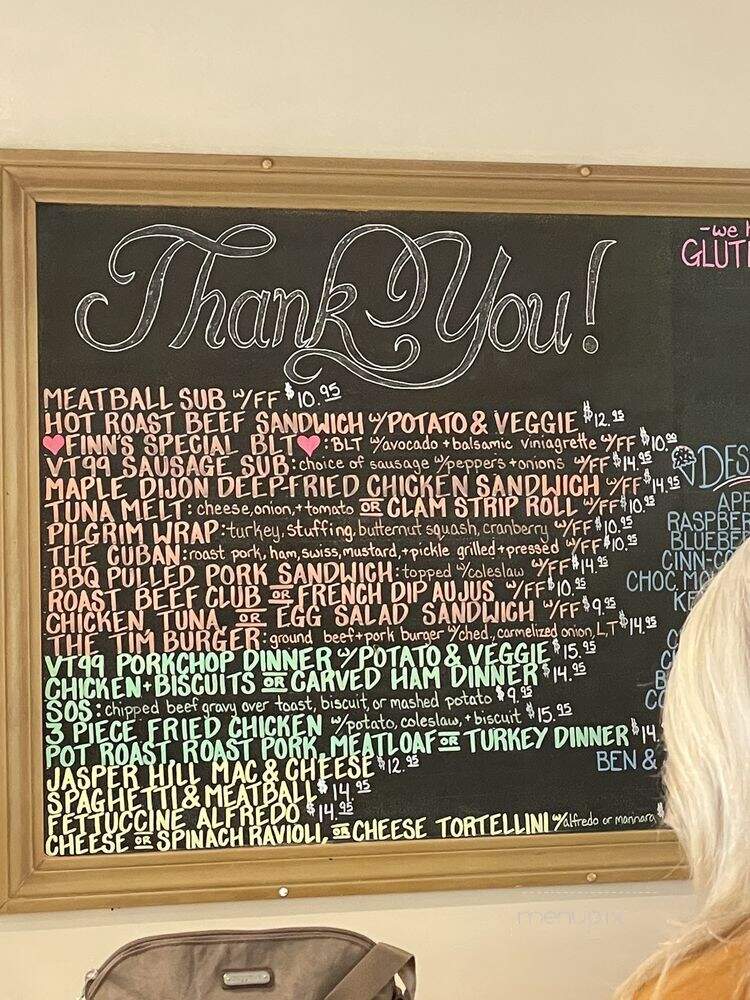 Thank You!
MEATBALL SUB w/FF $10.95
HOT ROAST BEEF SANDWICH w/POTATO & VEGGIE $12.95
FINN'S SPECIAL BLT: BLT w/avocado + balsamic viniagrette w/FF $10.00
VT99 SAUSAGE SUB: choice of sausage w/peppers + onions w/FF $14.95
MAPLE DIJON DEEP-FRIED CHICKEN SANDWICH w/FF $14.95
TUNA MELT: cheese, onion, + tomato OR CLAM STRIP ROLL w/FF $10.95
PILGRIM WRAP: turkey, stuffing, butternut squash, cranberry w/FF $10.95
THE CUBAN: roast pork, ham, swiss, mustard, + pickle grilled + pressed w/FF $10.95
BBQ PULLED PORK SANDWICH: topped w/coleslaw w/FF $14.95
ROAST BEEF CLUB OR FRENCH DIP AUJUS w/FF $10.95
CHICKEN, TUNA, OR EGG SALAD SANDWICH w/FF $9.95
THE TIM BURGER: ground beef + pork burger w/ched., carmelized onion, L,T $14.95
VT99 PORKCHOP DINNER w/POTATO & VEGGIE $15.95
CHICKEN + BISCUITS OR CARVED HAM DINNER $14.95
SOS: chipped beef gravy over toast, biscuit, or mashed potato $9.95
3 PIECE FRIED CHICKEN w/potato, coleslaw, + biscuit $15.95
POT ROAST, ROAST PORK, MEATLOAF OR TURKEY DINNER $14.
JASPER HILL MAC & CHEESE $12.95
SPAGHETTI & MEATBALL $14.95
FETTUCCINE ALFREDO $14.95
CHEESE OR SPINACH RAVIOLI, OR CHEESE TORTELLINI w/alfredo or marinara $
-we h
GLUT
DES
AP
RASPBE
BLUEBE
CINN-C
CHOC. MO
KE
BEN &
menupix